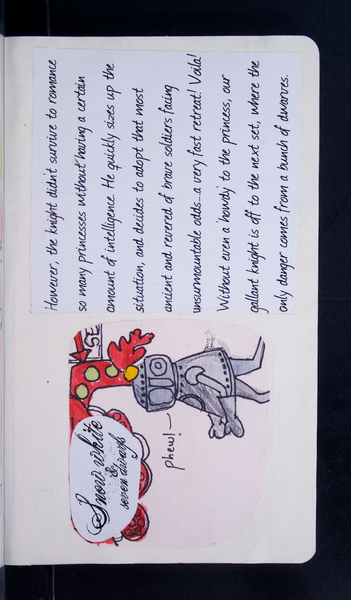 However, the knight didn't survive to romance
so many princesses without having a certain
amount of intelligence. He quickly sizes up the
situation, and decides to adopt that most
ancient and revered of brave soldiers facing
unsurmountable odds...a very fast retreat! Voila!
Without even a 'howdy' to the princess, our
gallant knight is off to the next set, where the
only danger comes from a bunch of dwarves.
Snow white
&
seven dwarfs
phew!